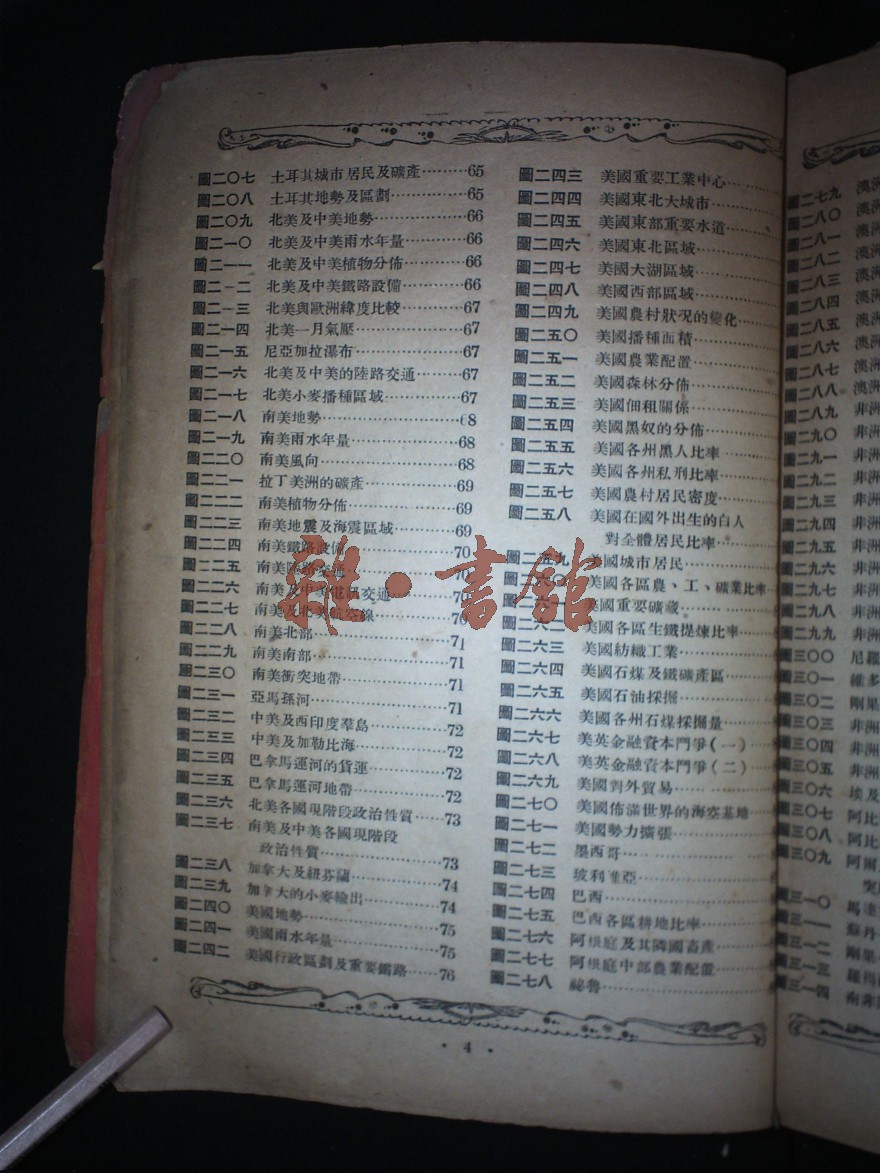 圖二〇七 土耳其城市居民及礦產………65
圖二〇八 土耳其地勢及區劃…………65
圖二〇九 北美及中美地勢……………66
圖二一〇 北美及中美雨水年量………66
圖二一一 北美及中美植物分佈………66
圖二一二 北美及中美鐵路設備………66
圖二一三 北美與歐洲緯度比較………67
圖二一四 北美一月氣壓………………67
圖二一五 尼亞加拉瀑布………………67
圖二一六 北美及中美的陸路交通……67
圖二一七 北美小麥播種區域…………67
圖二一八 南美地勢……………………68
圖二一九 南美雨水年量………………68
圖二二〇 南美風向……………………68
圖二二一 拉丁美洲的礦產……………69
圖二二二 南美植物分佈………………69
圖二二三 南美地震及海震區域………69
圖二二四 南美鐵路設備………………70
圖二二五 南美陸路交通………………70
圖二二六 南美及中美電訊交通………
圖二二七 南美及北美航空線…………70
圖二二八 南美北部……………………71
圖二二九 南美南部……………………71
圖二三〇 南美衝突地帶………………71
圖二三一 亞馬孫河……………………71
圖二三二 中美及西印度羣島…………72
圖二三三 中美及加勒比海……………72
圖二三四 巴拿馬運河的貨運…………72
圖二三五 巴拿馬運河地帶……………72
圖二三六 北美各國現階段政治性質……73
圖二三七 南美及中美各國現階段
政治性質……………………73
圖二三八 加拿大及紐芬蘭……………74
圖二三九 加拿大的小麥輸出…………74
圖二四〇 美國地勢……………………75
圖二四一 美國雨水年量………………75
圖二四二 美國行政區劃及重要鐵路……76
圖二四三 美國重要工業中心…
圖二四四 美國東北大城市……
圖二四五 美國東部重要水道…
圖二四六 美國東北區域………
圖二四七 美國大湖區域………
圖二四八 美國西部區域………
圖二四九 美國農村狀況的變化…
圖二五〇 美國播種面積………
圖二五一 美國農業配置………
圖二五二 美國森林分佈………
圖二五三 美國佃租關係………
圖二五四 美國黑奴的分佈……
圖二五五 美國各州黑人比率…
圖二五六 美國各州私刑比率…
圖二五七 美國農村居民密度…
圖二五八 美國在國外出生的白人
對全體居民比率…
圖二五九 美國城市居民………
圖二六〇 美國各區農、工、礦業比率…
圖二六一 美國重要礦藏………
圖二六二 美國各區生鐵提煉比率…
圖二六三 美國紡織工業………
圖二六四 美國石煤及鐵礦產區…
圖二六五 美國石油採掘………
圖二六六 美國各州石煤採掘量…
圖二六七 美英金融資本鬥爭(一)…
圖二六八 美英金融資本鬥爭(二)…
圖二六九 美國對外貿易………
圖二七〇 美國佈滿世界的海空基地…
圖二七一 美國勢力擴張………
圖二七二 墨西哥………………
圖二七三 玻利維亞……………
圖二七四 巴西…………………
圖二七五 巴西各區耕地比率…
圖二七六 阿根庭及其隣國畜產…
圖二七七 阿根庭中部農業配置…
圖二七八 祕魯…………………
· 4 ·
圖二七九 澳洲
圖二八〇 澳洲
圖二八一 澳洲
圖二八二 澳洲
圖二八三 澳洲
圖二八四 澳洲
圖二八五 澳洲
圖二八六 澳洲
圖二八七 澳洲
圖二八八 澳洲
圖二八九 非洲
圖二九〇 非洲
圖二九一 非洲
圖二九二 非洲
圖二九三 非洲
圖二九四 非洲
圖二九五 非洲
圖二九六 非洲
圖二九七 非洲
圖二九八 非洲
圖二九九 非洲
圖三〇〇 尼羅
圖三〇一 維多
圖三〇二 剛果
圖三〇三 非洲
圖三〇四 非洲
圖三〇五 非洲
圖三〇六 埃及
圖三〇七 阿比
圖三〇八 阿比
圖三〇九 阿爾
突
圖三一〇 馬達
圖三一一 蘇丹
圖三一二 剛果
圖三一三 羅得
圖三一四 南非
雜·書館